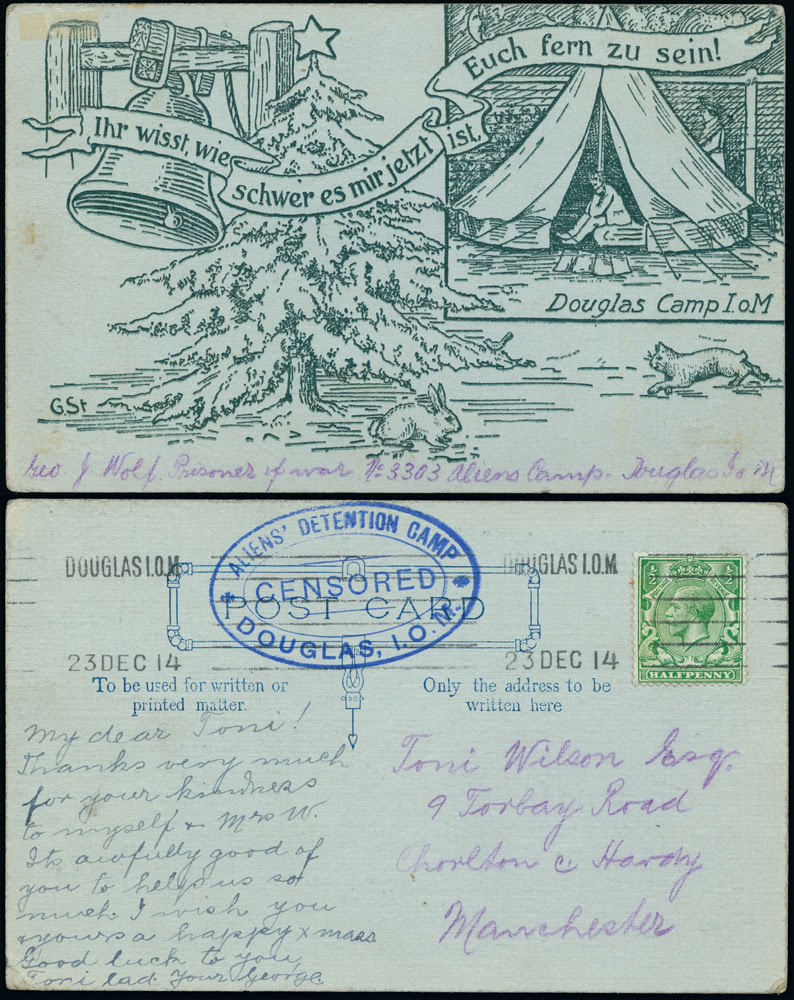 Ihr wisst, wie
schwer es mir jetzt
ist,
Euch fern zu sein!
Douglas Camp I.o.M
G.St
Geo J. Wolf. Prisoner of war No 3303 Aliens Camp. Douglas I o M
DOUGLAS I.O.M.
23 DEC 14
ALIENS' DETENTION CAMP
CENSORED
DOUGLAS, I.O.M.
POST CARD
DOUGLAS I.O.M.
23 DEC 14
½ ½
HALFPENNY
To be used for written or
printed matter.
Only the address to be
written here
My dear Toni!
Thanks very much
for your kindness
to myself & Mrs W.
Its awfully good of
you to help us so
much. I wish you
& yours a happy xmas
Good luck to you,
Toni lad. Your George.
Toni Wilson Esq.
9 Torbay Road
Chorlton c. Hardy
Manchester